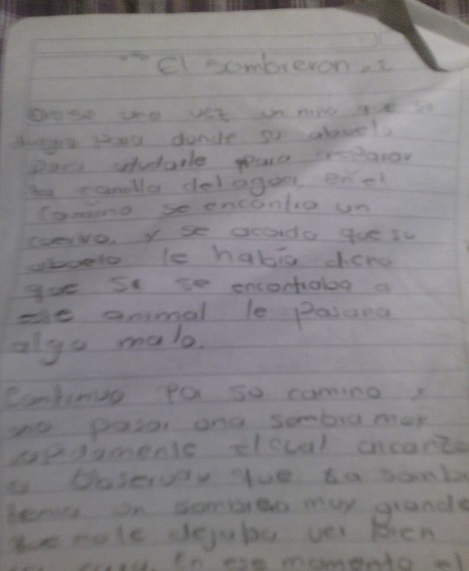 "El sombreron."
una vez un niño que se
donde su abuelo
para para
la canilla del agua, en el
camino se encontro un
cuervo. y se acordo que su
abuelo le había dicho
que si se encontraba a
ese animal le pasaria
algo malo.
Continuo so camino y
vio pasar una sombra muy
rapidamente el cual
a observar que la somb
tenia un sombrero muy grande
que no le dejaba ver bien
cara. En ese momento el